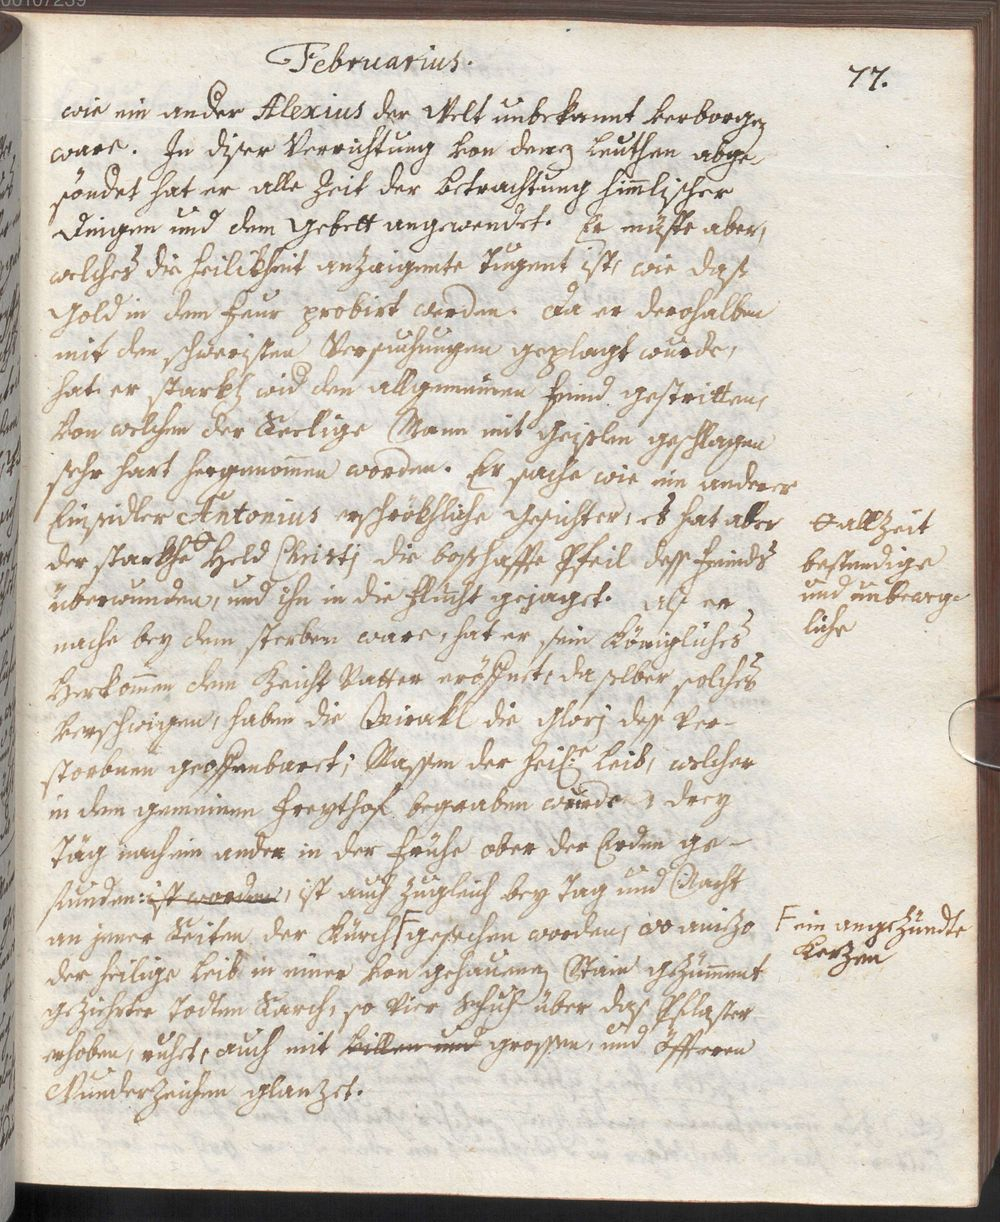 00107239
Februarius.
77.
wie ein ander Alexius der Welt unbekannt verborgen
ware. In diser Verrichtung von denen Leuthen abge-
söndet hat er alle Zeit der betrachtung himlischer
Dingen und dem Gebett angewendet. Er müste aber,
welches die Heilikheit anzaignete Tugent ist, wie das
Gold in dem feur probirt werden. Da er derohalben
mit den schweristen Versuchungen geplagt wurde,
hat er starkh wid den allgemeinen feind gestritten,
von welchen der Seelige Mann mit Geislen geschlagen
sehr hart hergenommen worden. Er sache wie ein anderer
Einsidler Antonius erschrökhliche gesichter, es hat aber
der starkhe Held Christi die boshaffte Pfeil dess feinds
überwunden, und ihn in die flucht gejaget. Als er
nache bey dem sterben ware, hat er sein Königliches
Herkommen dem Beicht Vatter eröffnet, da selber solches
verschwigen, haben die Mirakl die Glorj dess ver-
storbnen geoffenbaret; Massen der heil: Leib, welcher
in dem gemeinen freythof begraben wurde, drey
Täg nach ein ander in der frühe ober der Erden ge-
funden: ist worden, ist auch zugleich bey Tag und Nacht
an jener Seiten der Kürch F gesechen worden, wo anizo
der heilige Leib in einer von gehauenen Stain gezümmert
gezierten Todten Sarch, so vier Schuch über das Pflaster
erhoben, ruhet, auch mit villen und grossen, und öffteren
Wunderzeichen glanzet.
allzeit
bestendige
und unbeweg-
liche
F ein angezündte
Kerzen